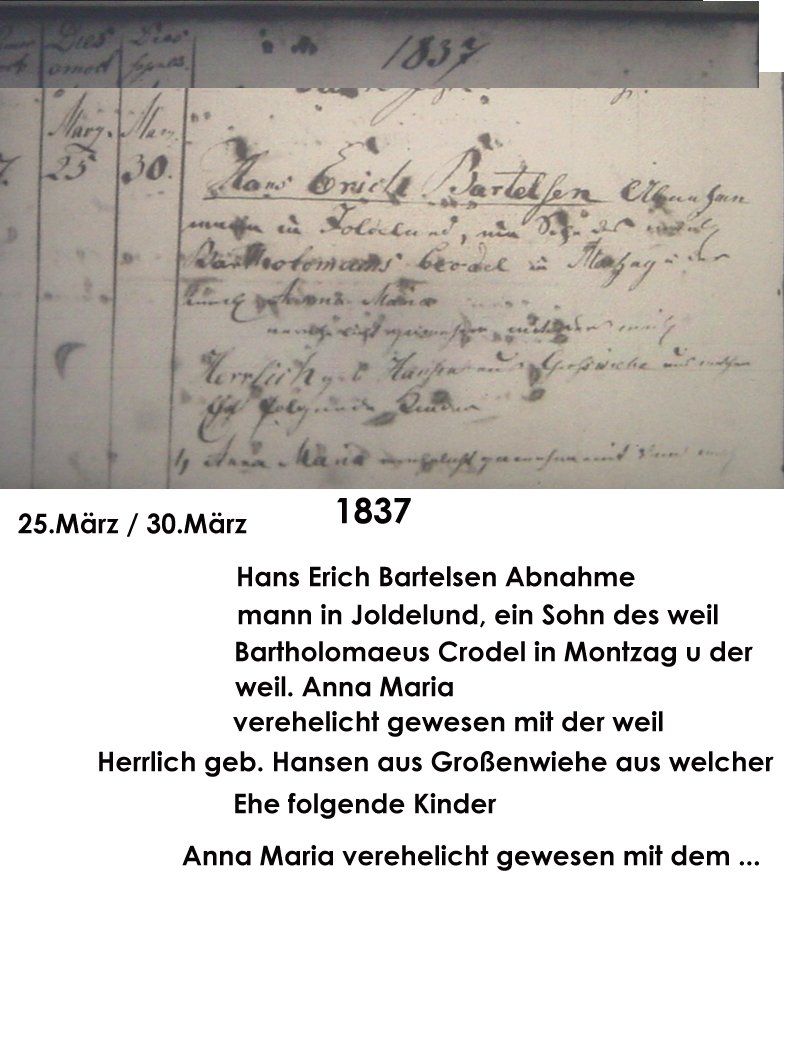 Dies
Dies
1837
März.
25
30.
Hans Erich Bartelsen Abnahme
mann in Joldelund, ein Sohn des weil
Bartholomaeus Crodel in u der
weil Anna Maria
verehelicht gewesen mit der weil
Herrlich geb Hansen aus Großenwiehe aus welcher
Ehe folgende Kinder
1, Anna Maria verehelicht gewesen mit dem
1837
25.März / 30.März
Hans Erich Bartelsen Abnahme
mann in Joldelund, ein Sohn des weil
Bartholomaeus Crodel in Montzag u der
weil. Anna Maria
verehelicht gewesen mit der weil
Herrlich geb. Hansen aus Großenwiehe aus welcher
Ehe folgende Kinder
Anna Maria verehelicht gewesen mit dem ...